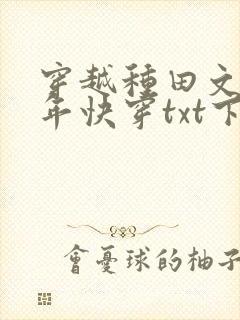 穿越種田文
年快穿txt下
會憂球的柚子